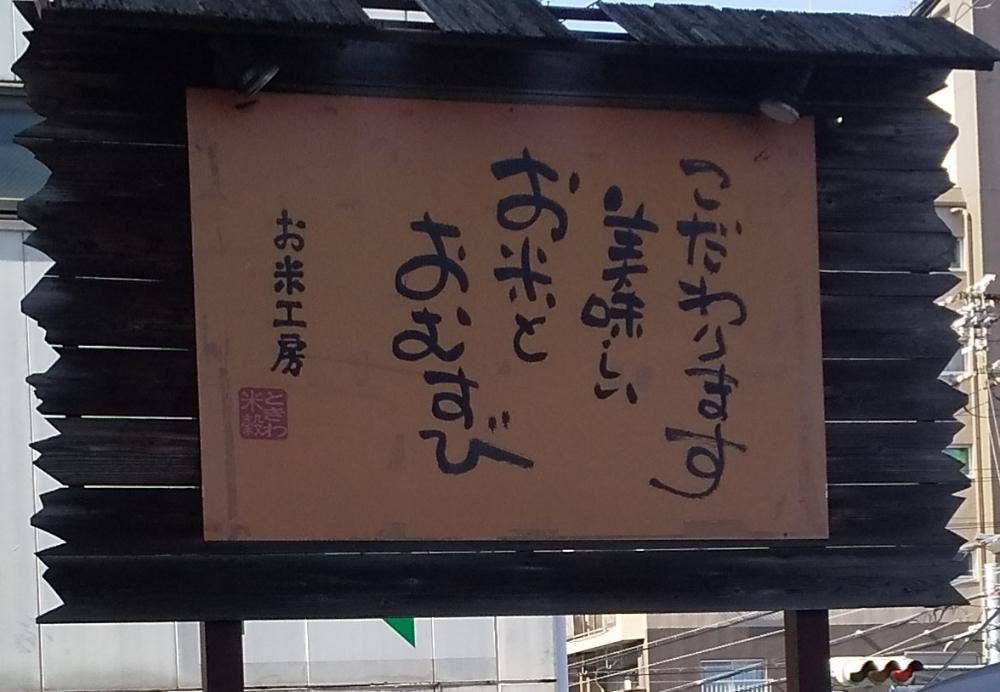 こだわります
美味しい
お米と
おむすび
お米工房
ときわ
米穀